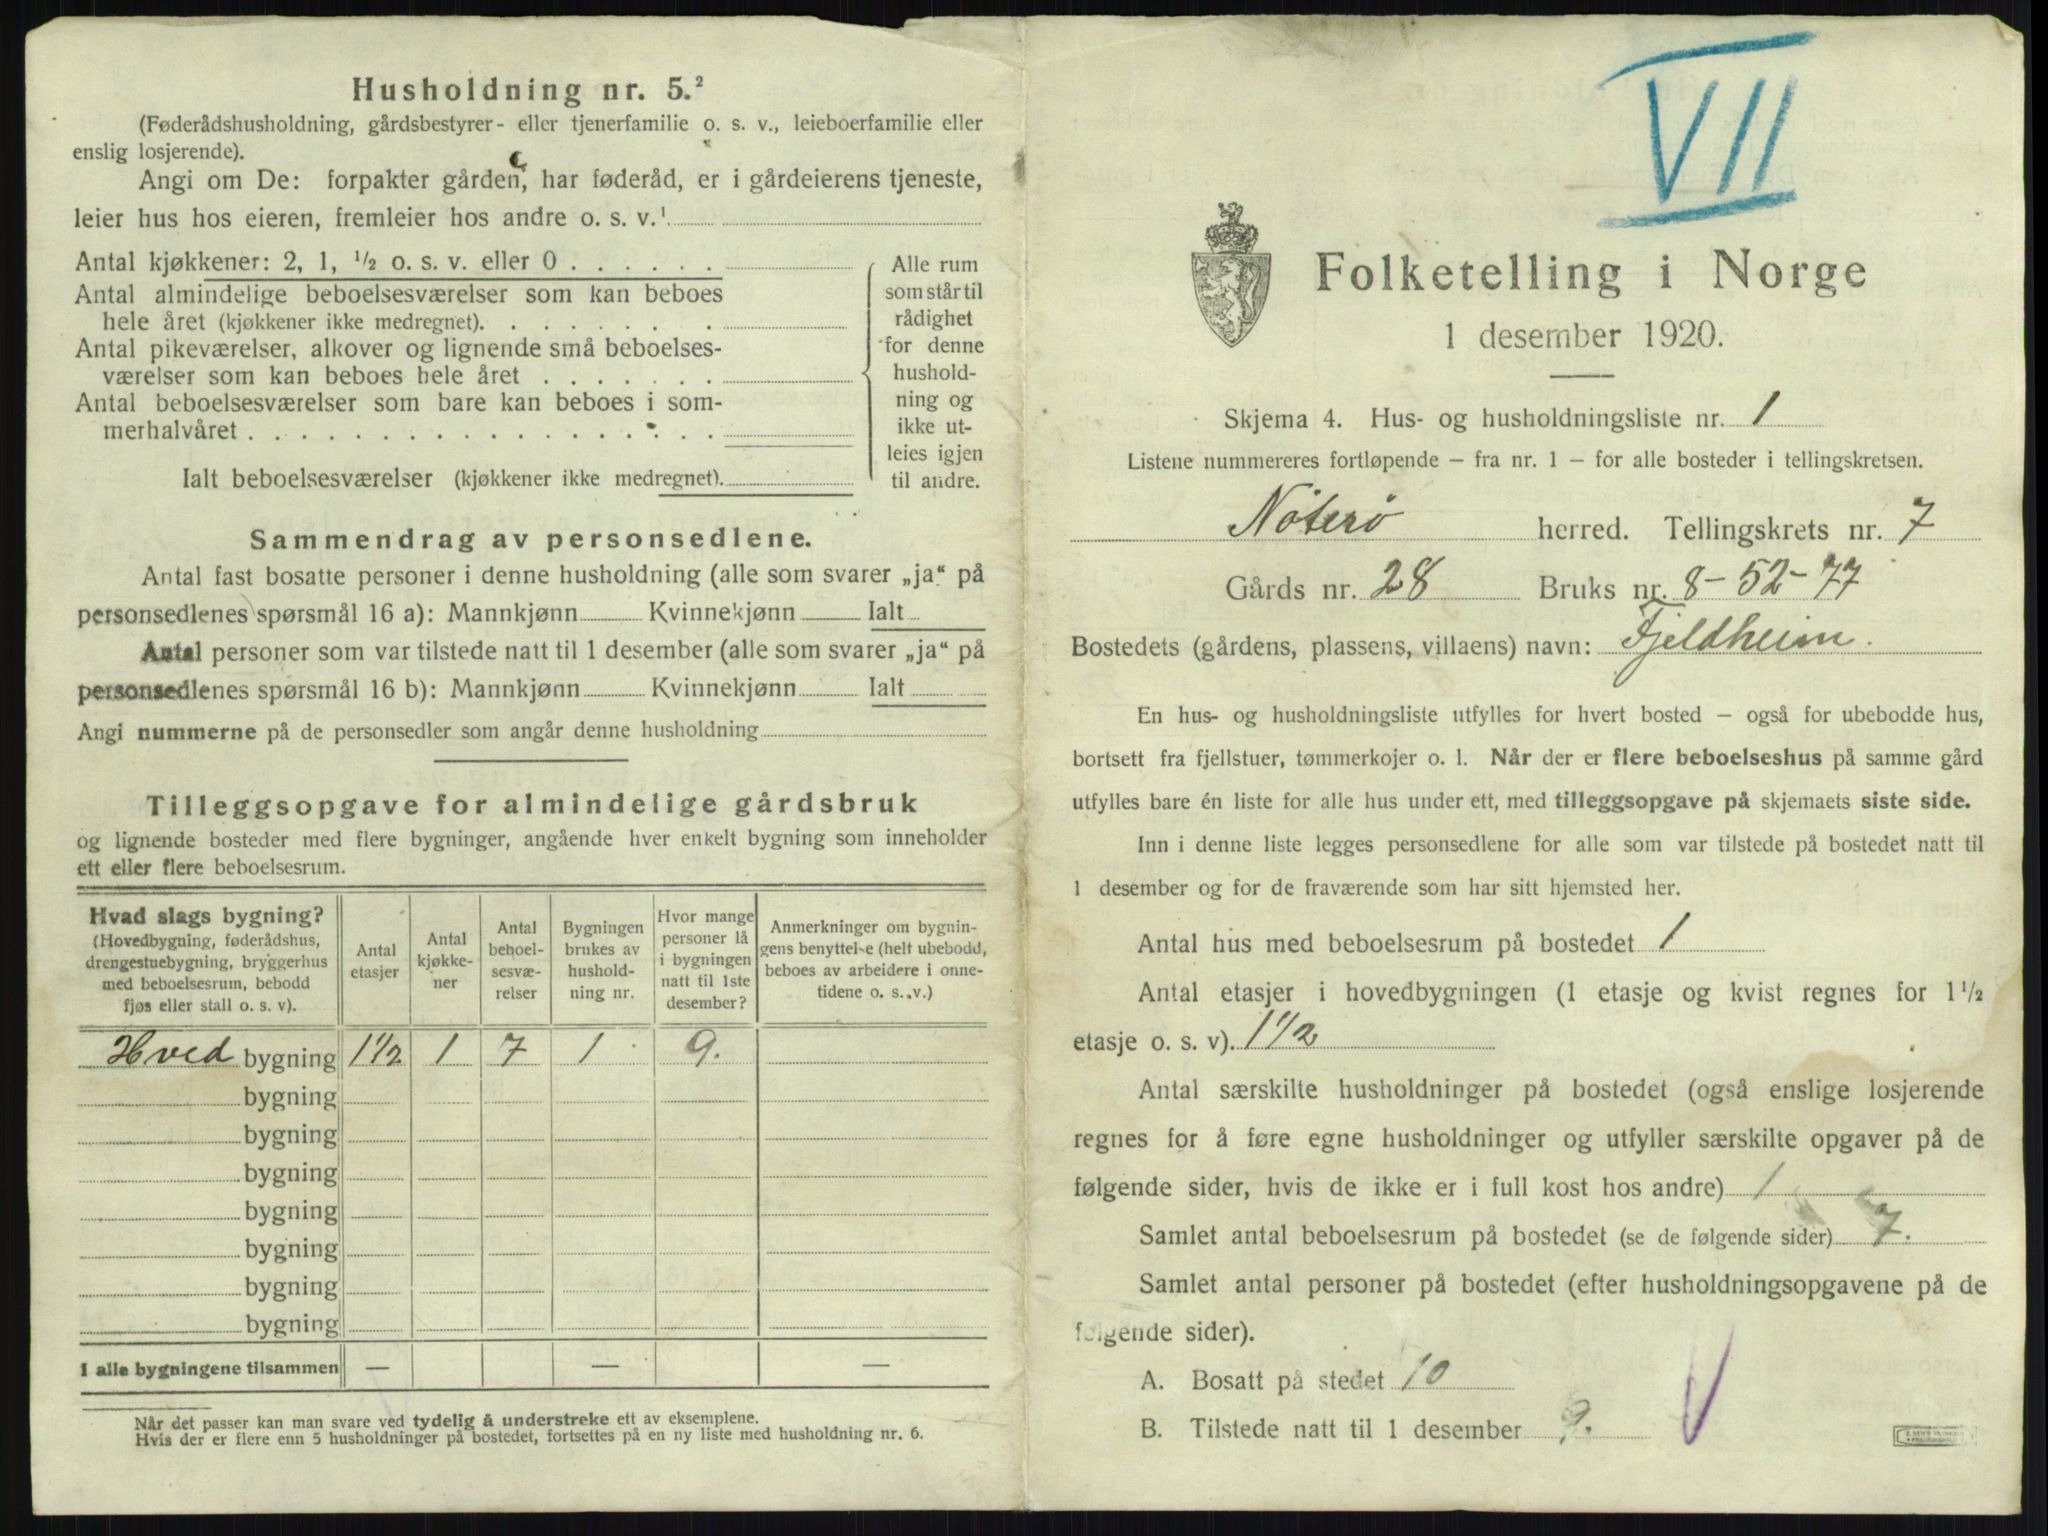 Husholdning nr. 5.²
(Føderådshusholdning, gårdsbestyrer- eller tjenerfamilie o. s. v., leieboerfamilie eller
enslig losjerende).
Angi om De: forpakter gården, har føderåd, er i gårdeierens tjeneste,
leier hus hos eieren, fremleier hos andre o. s. v.¹
Antal kjøkkener: 2, 1, ½ o. s. v. eller 0 . . . . . .
Antal almindelige beboelsesværelser som kan beboes
hele året (kjøkkener ikke medregnet). . . . . . . .
Antal pikeværelser, alkover og lignende små beboelses-
værelser som kan beboes hele året . . . . . . .
Antal beboelsesværelser som bare kan beboes i som-
merhalvåret . . . . . . . . . . . . . . . . . .
Ialt beboelsesværelser (kjøkkener ikke medregnet).
Alle rum
som står til
rådighet
for denne
hushold-
ning og
ikke ut-
leies igjen
til andre.
Sammendrag av personsedlene.
Antal fast bosatte personer i denne husholdning (alle som svarer „ja“ på
personsedlenes spørsmål 16 a): Mannkjønn Kvinnekjønn Ialt
Antal personer som var tilstede natt til 1 desember (alle som svarer „ja“ på
personsedlenes spørsmål 16 b): Mannkjønn Kvinnekjønn Ialt
Angi nummerne på de personsedler som angår denne husholdning
Tilleggsopgave for almindelige gårdsbruk
og lignende bosteder med flere bygninger, angående hver enkelt bygning som inneholder
ett eller flere beboelsesrum.
Hvad slags bygning?
(Hovedbygning, føderådshus,
drengestuebygning, bryggerhus
med beboelsesrum, bebodd
fjøs eller stall o. s. v).
Antal
etasjer
Antal
kjøkke-
ner
Antal
beboel-
sesvæ-
relser
Bygningen
brukes av
hushold-
ning nr.
Hvor mange
personer lå
i bygningen
natt til 1ste
desember?
Anmerkninger om bygnin-
gens benyttelse (helt ubebodd,
beboes av arbeidere i onne-
tidene o. s. v.)
Hved bygning 1½ 1 7 1 9.
bygning
bygning
bygning
bygning
bygning
bygning
bygning
I alle bygningene tilsammen — — —
Når det passer kan man svare ved tydelig å understreke ett av eksemplene.
Hvis der er flere enn 5 husholdninger på bostedet, fortsettes på en ny liste med husholdning nr. 6.
VII
Folketelling i Norge
1 desember 1920.
Skjema 4. Hus- og husholdningsliste nr. 1
Listene nummereres fortløpende – fra nr. 1 – for alle bosteder i tellingskretsen.
Nøterø herred. Tellingskrets nr. 7
Gårds nr. 28 Bruks nr. 8-52-77
Bostedets (gårdens, plassens, villaens) navn: Fjeldheim.
En hus- og husholdningsliste utfylles for hvert bosted – også for ubebodde hus,
bortsett fra fjellstuer, tømmerkojer o. l. Når der er flere beboelseshus på samme gård
utfylles bare én liste for alle hus under ett, med tilleggsopgave på skjemaets siste side.
Inn i denne liste legges personsedlene for alle som var tilstede på bostedet natt til
1 desember og for de fraværende som har sitt hjemsted her.
Antal hus med beboelsesrum på bostedet 1
Antal etasjer i hovedbygningen (1 etasje og kvist regnes for 1½
etasje o. s. v). 1½
Antal særskilte husholdninger på bostedet (også enslige losjerende
regnes for å føre egne husholdninger og utfyller særskilte opgaver på de
følgende sider, hvis de ikke er i full kost hos andre) 1
Samlet antal beboelsesrum på bostedet (se de følgende sider) 7.
Samlet antal personer på bostedet (efter husholdningsopgavene på de
følgende sider).
A. Bosatt på stedet 10
B. Tilstede natt til 1 desember 9.